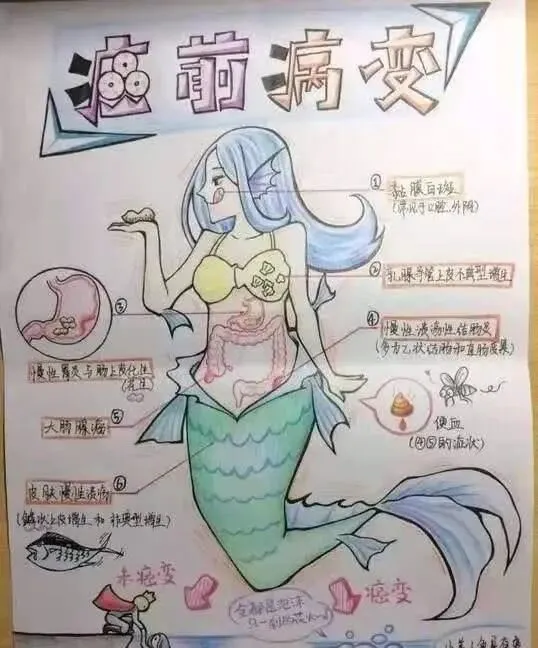 癌前病变
① 黏膜白斑
(常见于口腔、外阴)
② 乳腺导管上皮不典型增生
③
④ 慢性溃疡性结肠炎
(多为乙状结肠和直肠受累)
慢性胃炎与肠上皮化生
⑤
大肠腺瘤
便血
(④⑤的症状)
⑥
皮肤慢性溃疡
(鳞状上皮增生和非典型增生)
未癌变
癌变
全都是泡沫